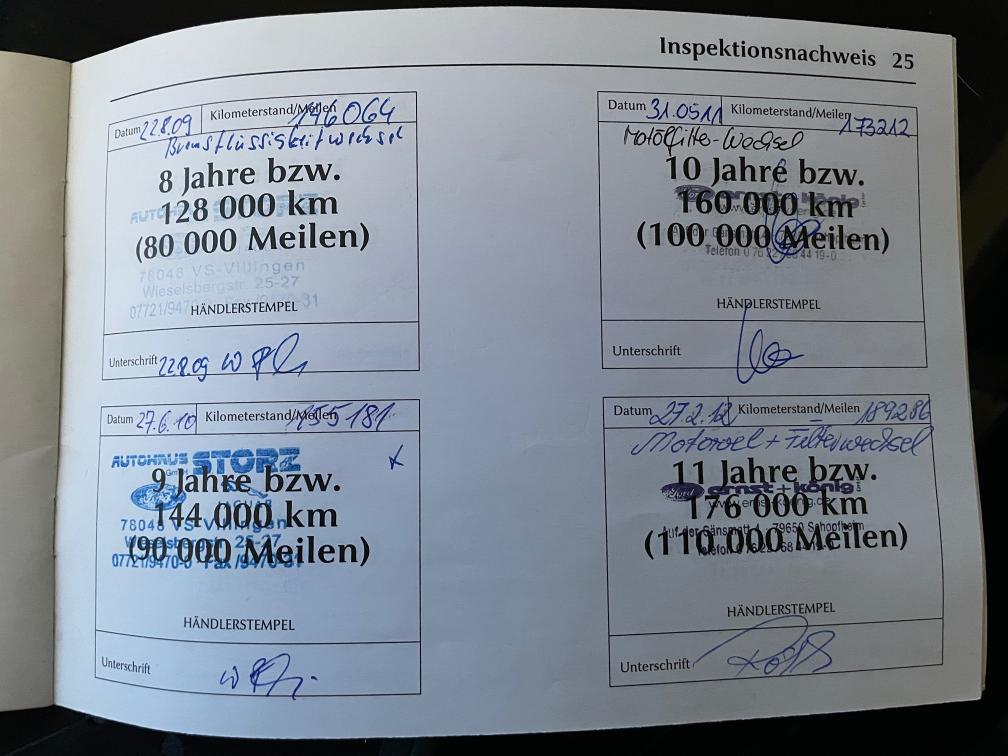 Inspektionsnachweis 25
Datum 22.8.09 Kilometerstand/Meilen 146064
Bremsflüssigkeit wechsel
8 Jahre bzw.
128 000 km
(80 000 Meilen)
AUTOHAUS STORZ
78048 VS-Villingen
Wieselsbergstr. 25-27
07721/9470-0 Fax /9470-31
HÄNDLERSTEMPEL
Unterschrift 22.8.09
Datum 27.6.10 Kilometerstand/Meilen 155181
AUTOHAUS STORZ
GmbH
Ford
9 Jahre bzw.
144 000 km
(90 000 Meilen)
78048 VS-Villingen
Wieselsbergstr. 25-27
07721/9470-0 Fax /9470-31
HÄNDLERSTEMPEL
Unterschrift
Datum 31.05.11 Kilometerstand/Meilen 173212
Motölfilter-Wechsel
10 Jahre bzw.
160 000 km
(100 000 Meilen)
Ford ernst+könig
Telefon 0 76 22 / 68 44 19-0
HÄNDLERSTEMPEL
Unterschrift
Datum 27.2.12 Kilometerstand/Meilen 189286
Motoroel + Filterwechsel
11 Jahre bzw.
176 000 km
(110 000 Meilen)
Ford ernst+könig
Auf der Gänsmatt 1 · 79650 Schopfheim
HÄNDLERSTEMPEL
Unterschrift